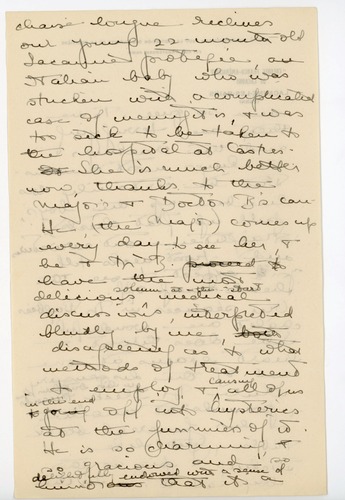 chaise longue reclines
our young 22 months old
Lacaune protegée, an
Italian baby who was
stricken with a complicated
case of meningitis, & was
too sick to be taken to
the hospital at Castres.
She is much better
now, thanks to the
Major's & Doctor B's care
He (the Major) comes up
every day to see her, &
he & Dr. B. proceed to
have the most
solemn at the start
delicious medical
discussions, interpreted
bluntly by me, both
disagreeing as to what
methods of treatment
to employ, & causing all of us
in the end to going off into hysterics
at the funniness of it.
He is so charming &
so gracious and so
endowed with a sense of
humor that it's a